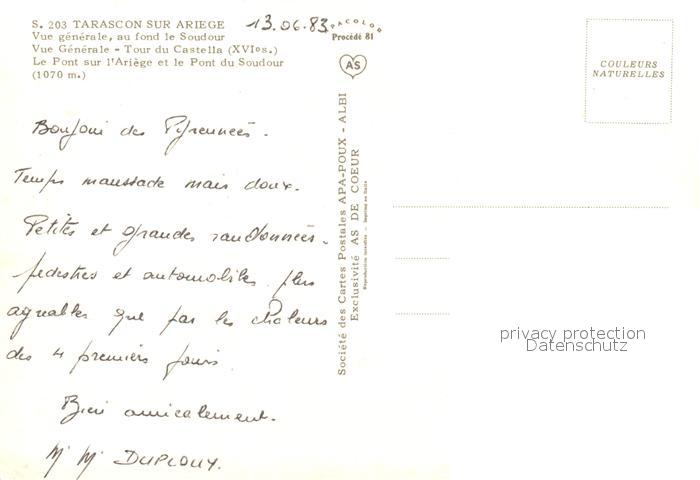 S. 203 TARASCON SUR ARIEGE
Vue générale, au fond le Soudour
Vue Générale - Tour du Castella (XVIes.)
Le Pont sur l'Ariège et le Pont du Soudour
(1070 m.)
13.06.83
PACOLOR
Procédé 81
AS
COULEURS
NATURELLES
Bonjour des Pyrennées.
Temps maussade mais doux.
Petites et grandes randonnées.
pedestres et automobiles plus
agréables que par les chaleurs
des 4 premiers jours.
Bien amicalement.
M. M. DUPLOUY.
Société des Cartes Postales APA-POUX - ALBI
Exclusivité AS DE COEUR
privacy protection
Datenschutz